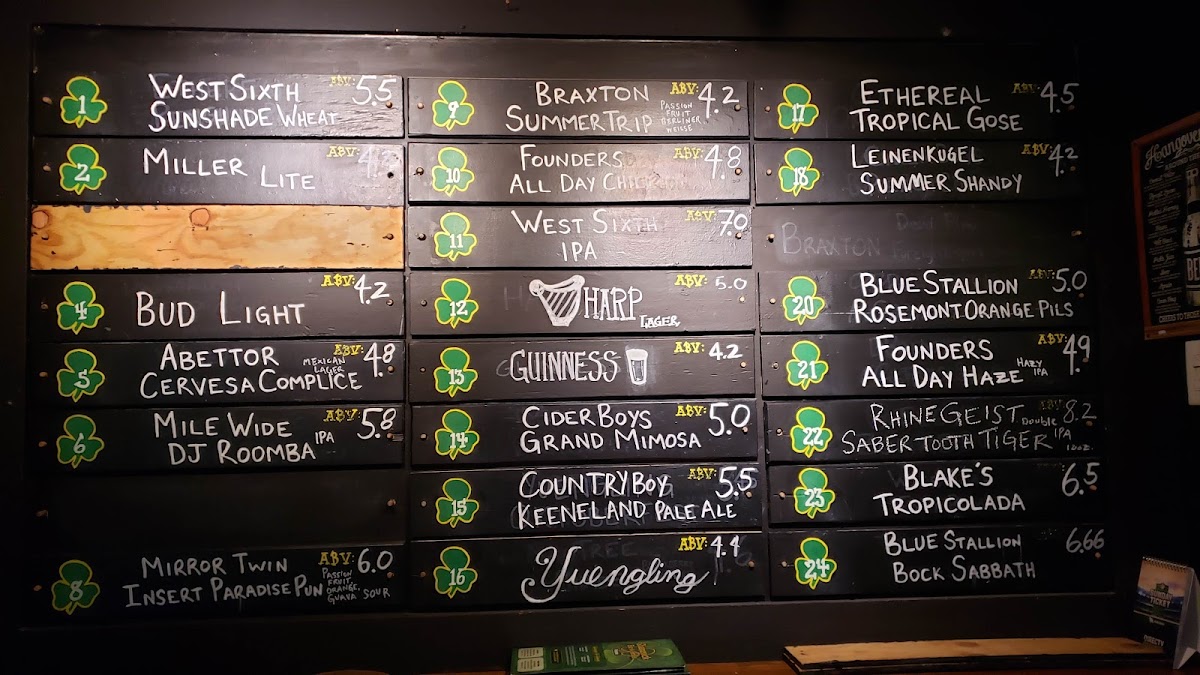 1 WEST SIXTH ABV: 5.5
SUNSHADE WHEAT
2 MILLER LITE ABV:
4 BUD LIGHT ABV: 4.2
5 ABETTOR ABV: 4.8
CERVESA COMPLICE MEXICAN LAGER
6 MILE WIDE ABV: 5.8
DJ ROOMBA IPA
8 MIRROR TWIN ABV: 6.0
INSERT PARADISE PUN PASSION
FRUIT,
ORANGE,
GUAVA SOUR
9 BRAXTON ABV: 4.2
SUMMER TRIP PASSION
FRUIT
BERLINER
WEISSE
10 FOUNDERS ABV: 4.8
ALL DAY
11 WEST SIXTH ABV: 7.0
IPA
12 HARP LAGER ABV: 5.0
13 GUINNESS ABV: 4.2
14 CIDERBOYS ABV: 5.0
GRAND MIMOSA
15 COUNTRY BOY ABV: 5.5
KEENELAND PALE ALE
16 Yuengling ABV: 4.4
17 ETHEREAL ABV: 4.5
TROPICAL GOSE
18 LEINENKUGEL ABV: 4.2
SUMMER SHANDY
BRAXTON
20 BLUE STALLION ABV: 5.0
ROSEMONT ORANGE PILS
21 FOUNDERS ABV: 4.9
ALL DAY HAZE HAZY
IPA
22 RHINEGEIST ABV: 8.2
SABER TOOTH TIGER DOUBLE
IPA
10oz.
23 BLAKE'S 6.5
TROPICOLADA
24 BLUE STALLION 6.66
BOCK SABBATH
Hangove